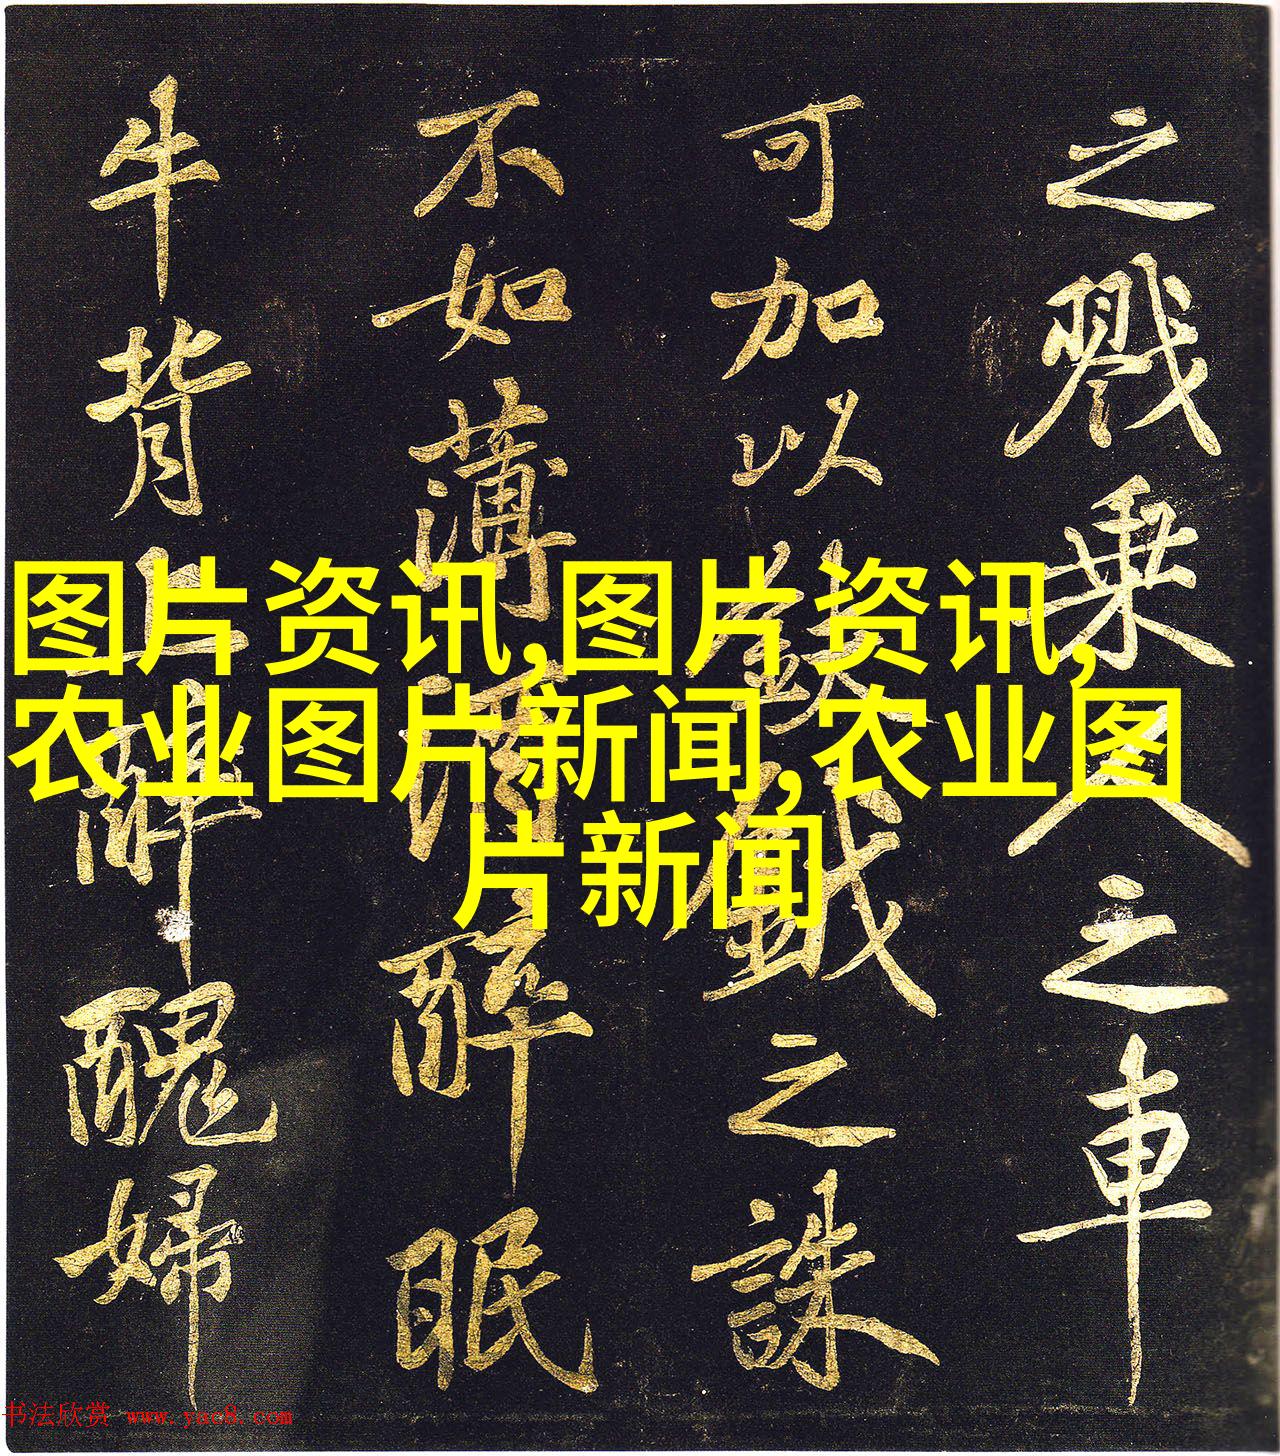 之戮乘人之車
可加以鈇鉞之誅
不如薄酒醉眠
牛背上醜婦
图片资讯,图片资讯,
农业图片新闻,农业图
片新闻
书法欣赏 www.yac8.com